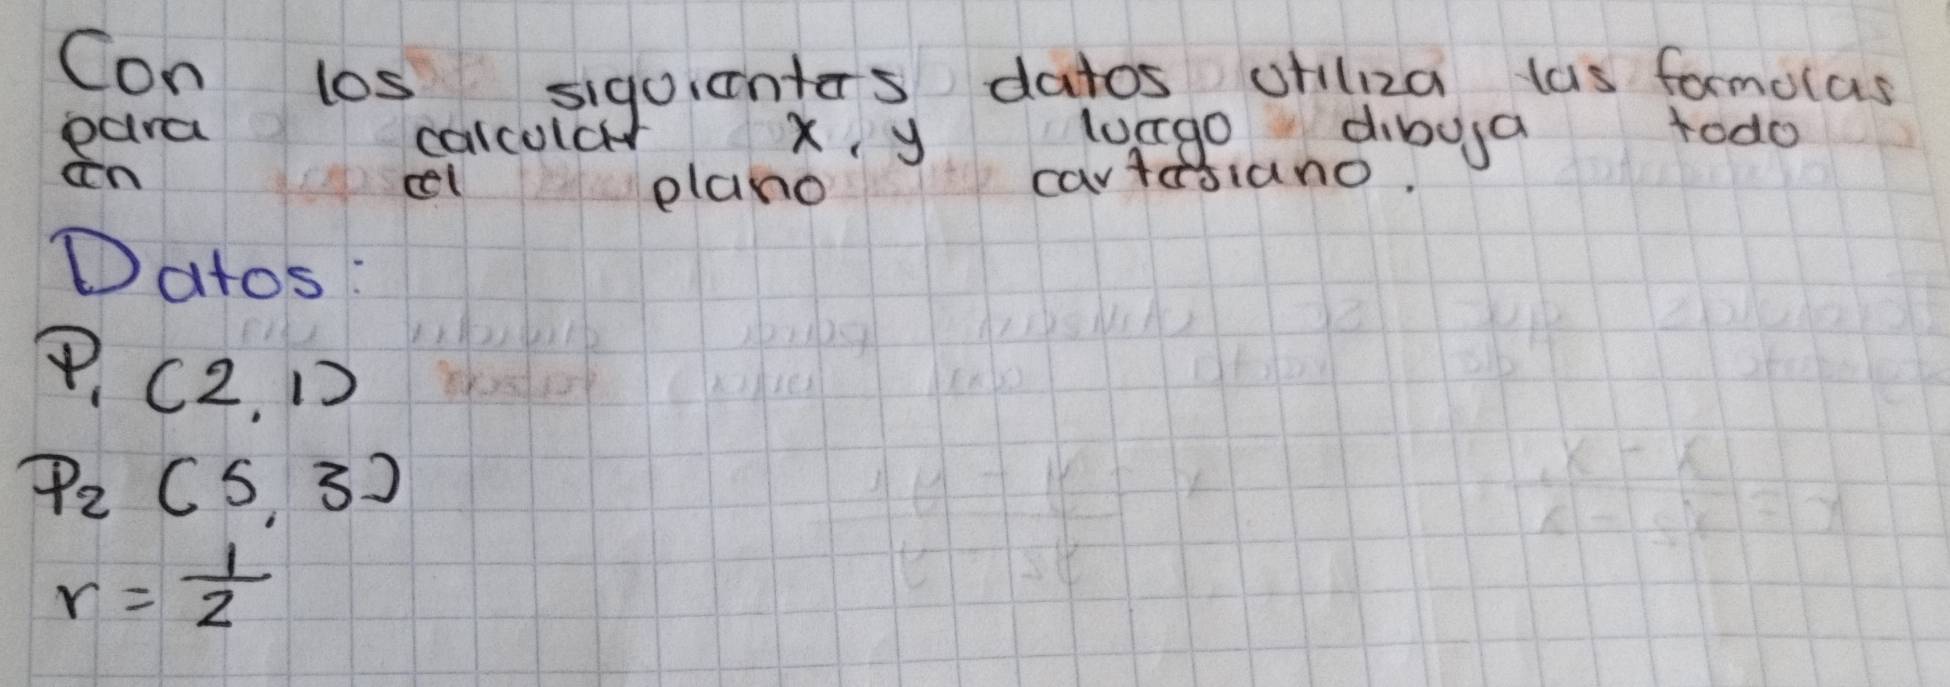 Con los siguientes datos utiliza las formulas
para calcular x, y luego dibuja todo
en el plano cartesiano.
Datos:
P₁ (2, 1)
P₂ (5, 3)
r = 1/2